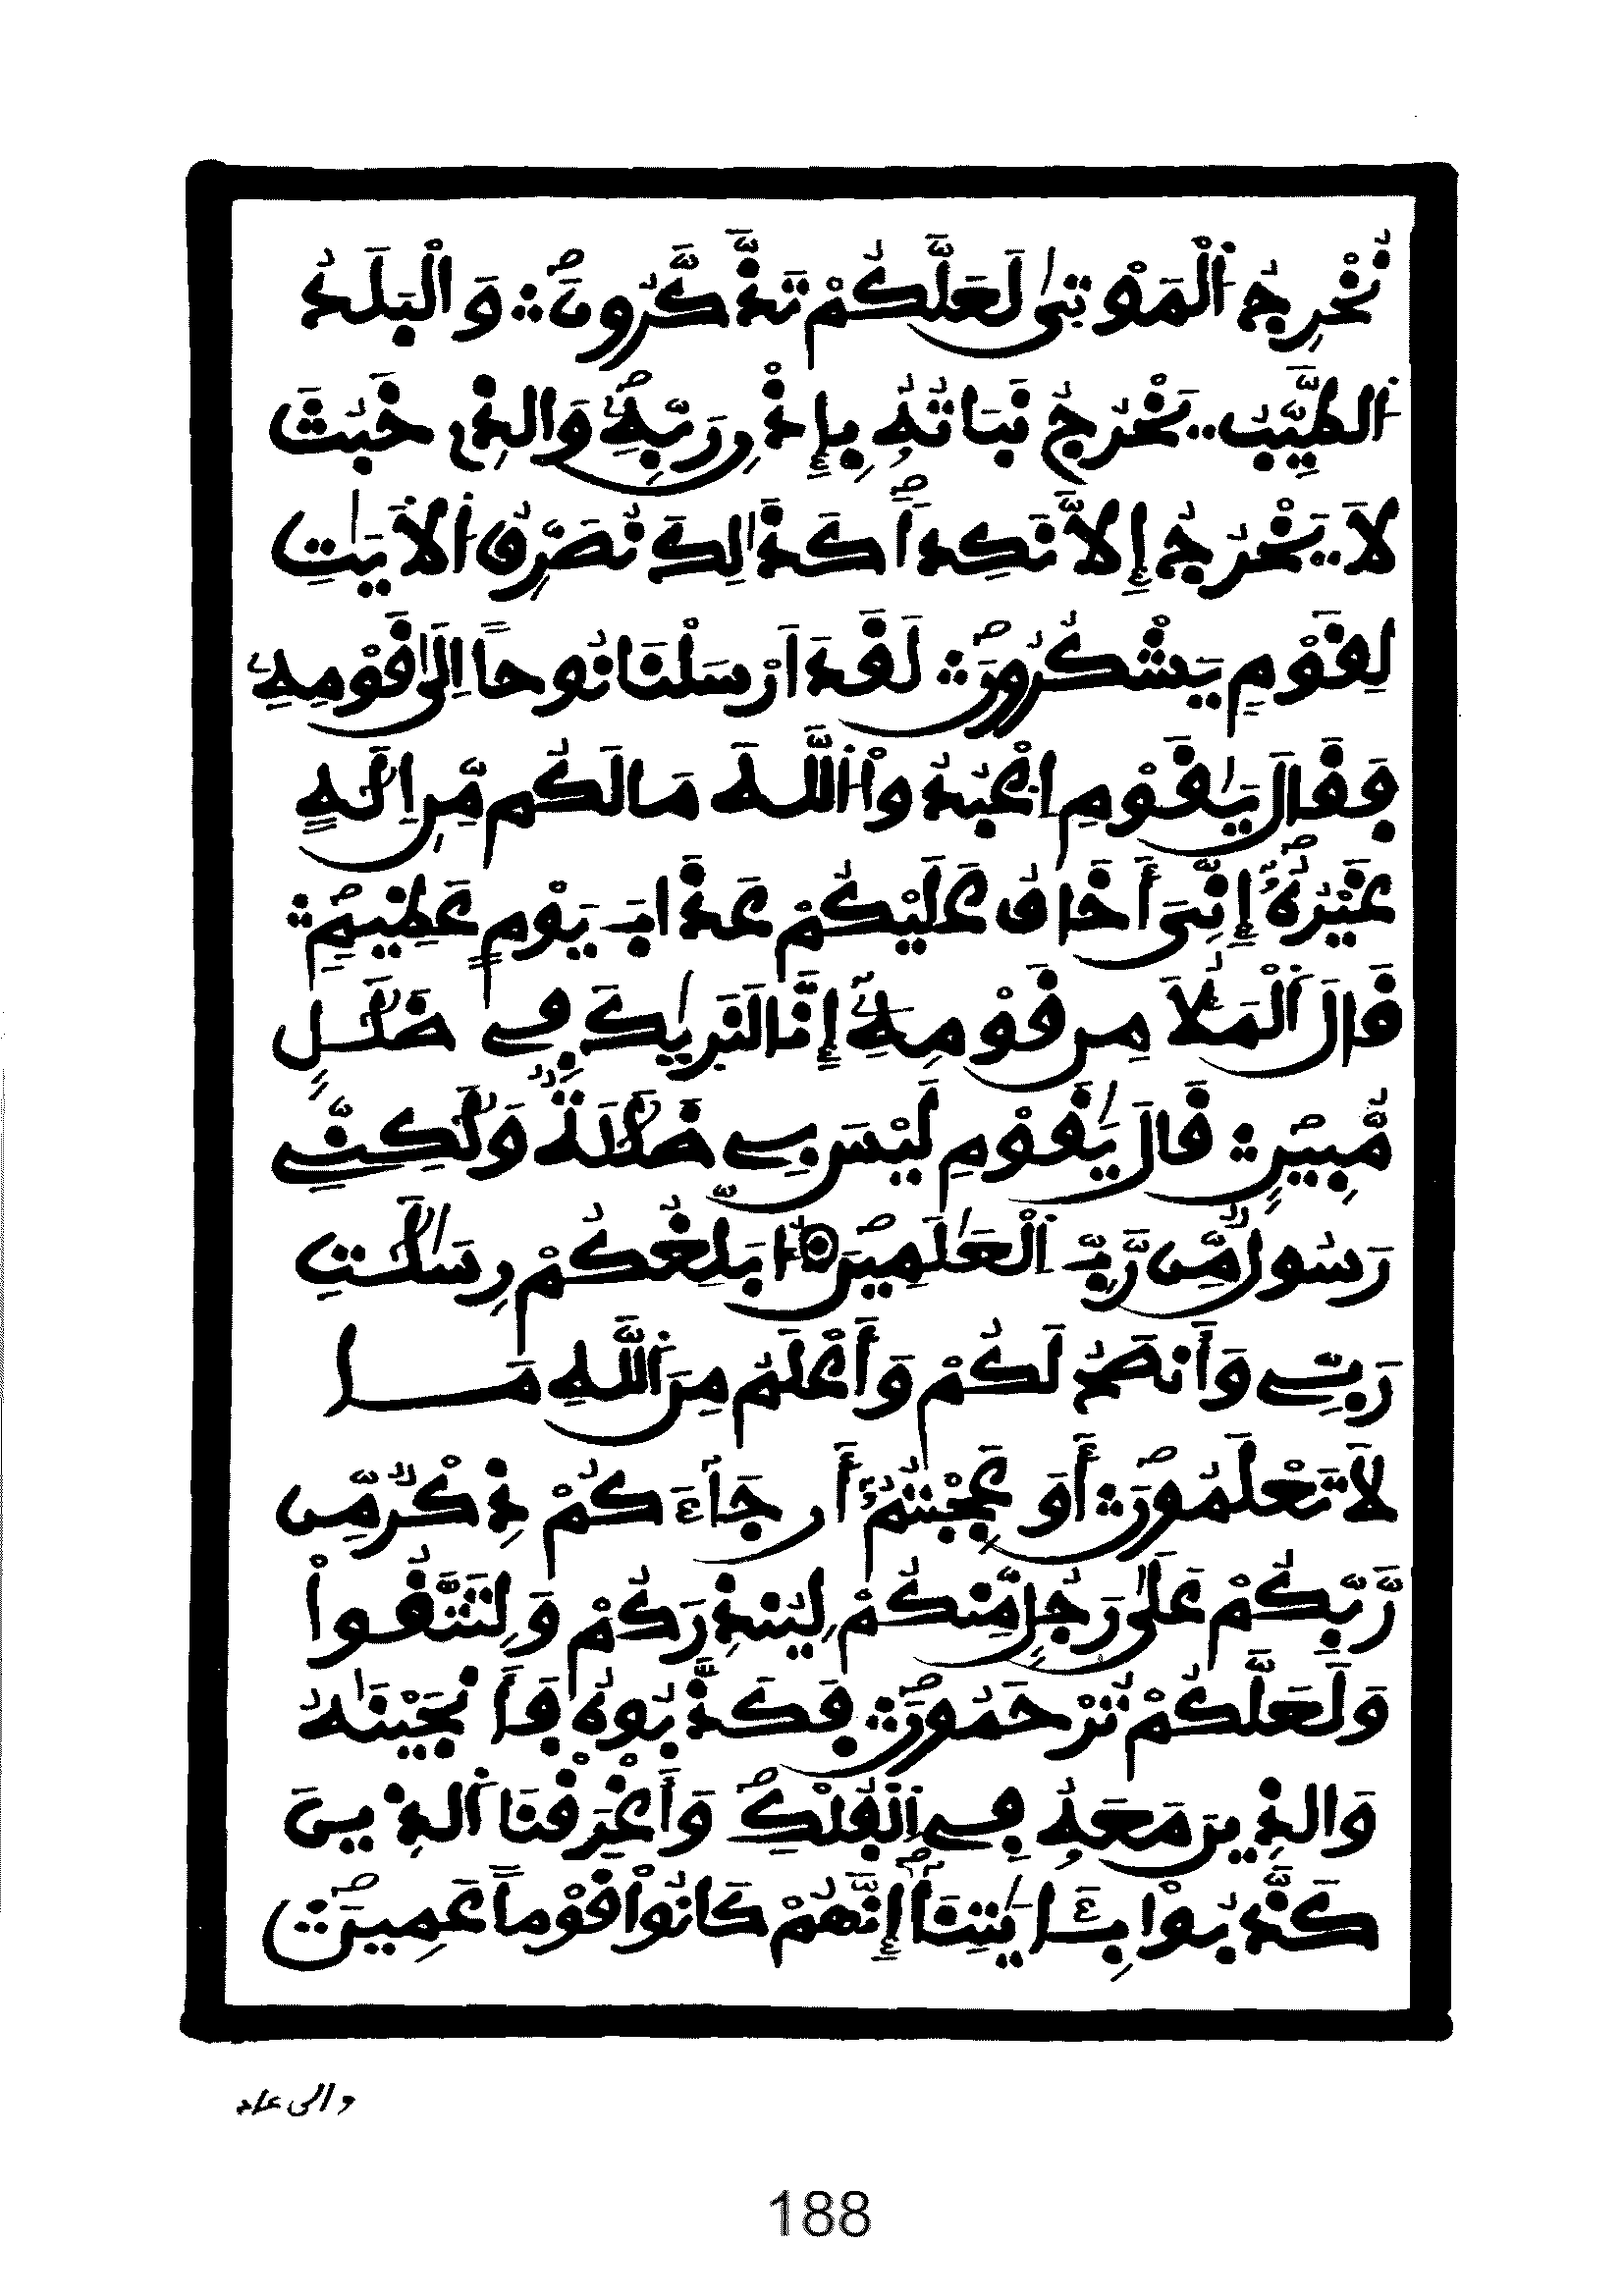 نُخْرِجُ اَ۬لْمَوْتَىٰ لَعَلَّكُمْ تَذَّكَّرُونَۖ ۞ وَالْبَلَدُ
اُ۬لطَّيِّبُ يَخْرُجُ نَبَاتُهُۥ بِإِذْنِ رَبِّهِۦۖ وَالذِے خَبُثَ
لَا يَخْرُجُ إِلَّا نَكِداٗۖ كَذَٰلِكَ نُصَرِّفُ اُ۬لَايَٰتِ
لِقَوْمٖ يَشْكُرُونَۖ ۞ لَقَدَ اَرْسَلْنَا نُوحاً اِلَىٰ قَوْمِهِۦ
فَقَالَ يَٰقَوْمِ اِ۟عْبُدُواْ اُ۬للَّهَ مَا لَكُم مِّنِ اِلَٰهٍ
غَيْرُهُۥٓۖ إِنِّىَ أَخَافُ عَلَيْكُمْ عَذَابَ يَوْمٍ عَظِيمٖۖ ۞
قَالَ اَ۬لْمَلَأُ مِن قَوْمِهِۦٓ إِنَّا لَنَرَىٰكَ فِے ضَلَٰلٖ
مُّبِينٖۖ ۞ قَالَ يَٰقَوْمِ لَيْسَ بِے ضَلَٰلَةٞ وَلَٰكِنِّے
رَسُولٞ مِّن رَّبِّ اِ۬لْعَٰلَمِينَۖ ۞ أُبَلِّغُكُمْ رِسَٰلَٰتِ
رَبِّے وَأَنصَحُ لَكُمْ وَأَعْلَمُ مِنَ اَ۬للَّهِ مَا
لَا تَعْلَمُونَۖ ۞ أَوَ عَجِبْتُمُۥٓ أَن جَآءَكُمْ ذِكْرٞ مِّن
رَّبِّكُمْ عَلَىٰ رَجُلٖ مِّنكُمْ لِيُنذِرَكُمْ وَلِتَتَّقُواْ
وَلَعَلَّكُمْ تُرْحَمُونَۖ ۞ فَكَذَّبُوهُ فَأَنجَيْنَٰهُ
وَالذِينَ مَعَهُۥ فِے اِ۬لْفُلْكِۖ وَأَغْرَقْنَا اَ۬لذِينَ
كَذَّبُواْ بِـَٔايَٰتِنَآۖ إِنَّهُمْ كَانُواْ قَوْماً عَمِينَۖ ۞
والى عاد
188